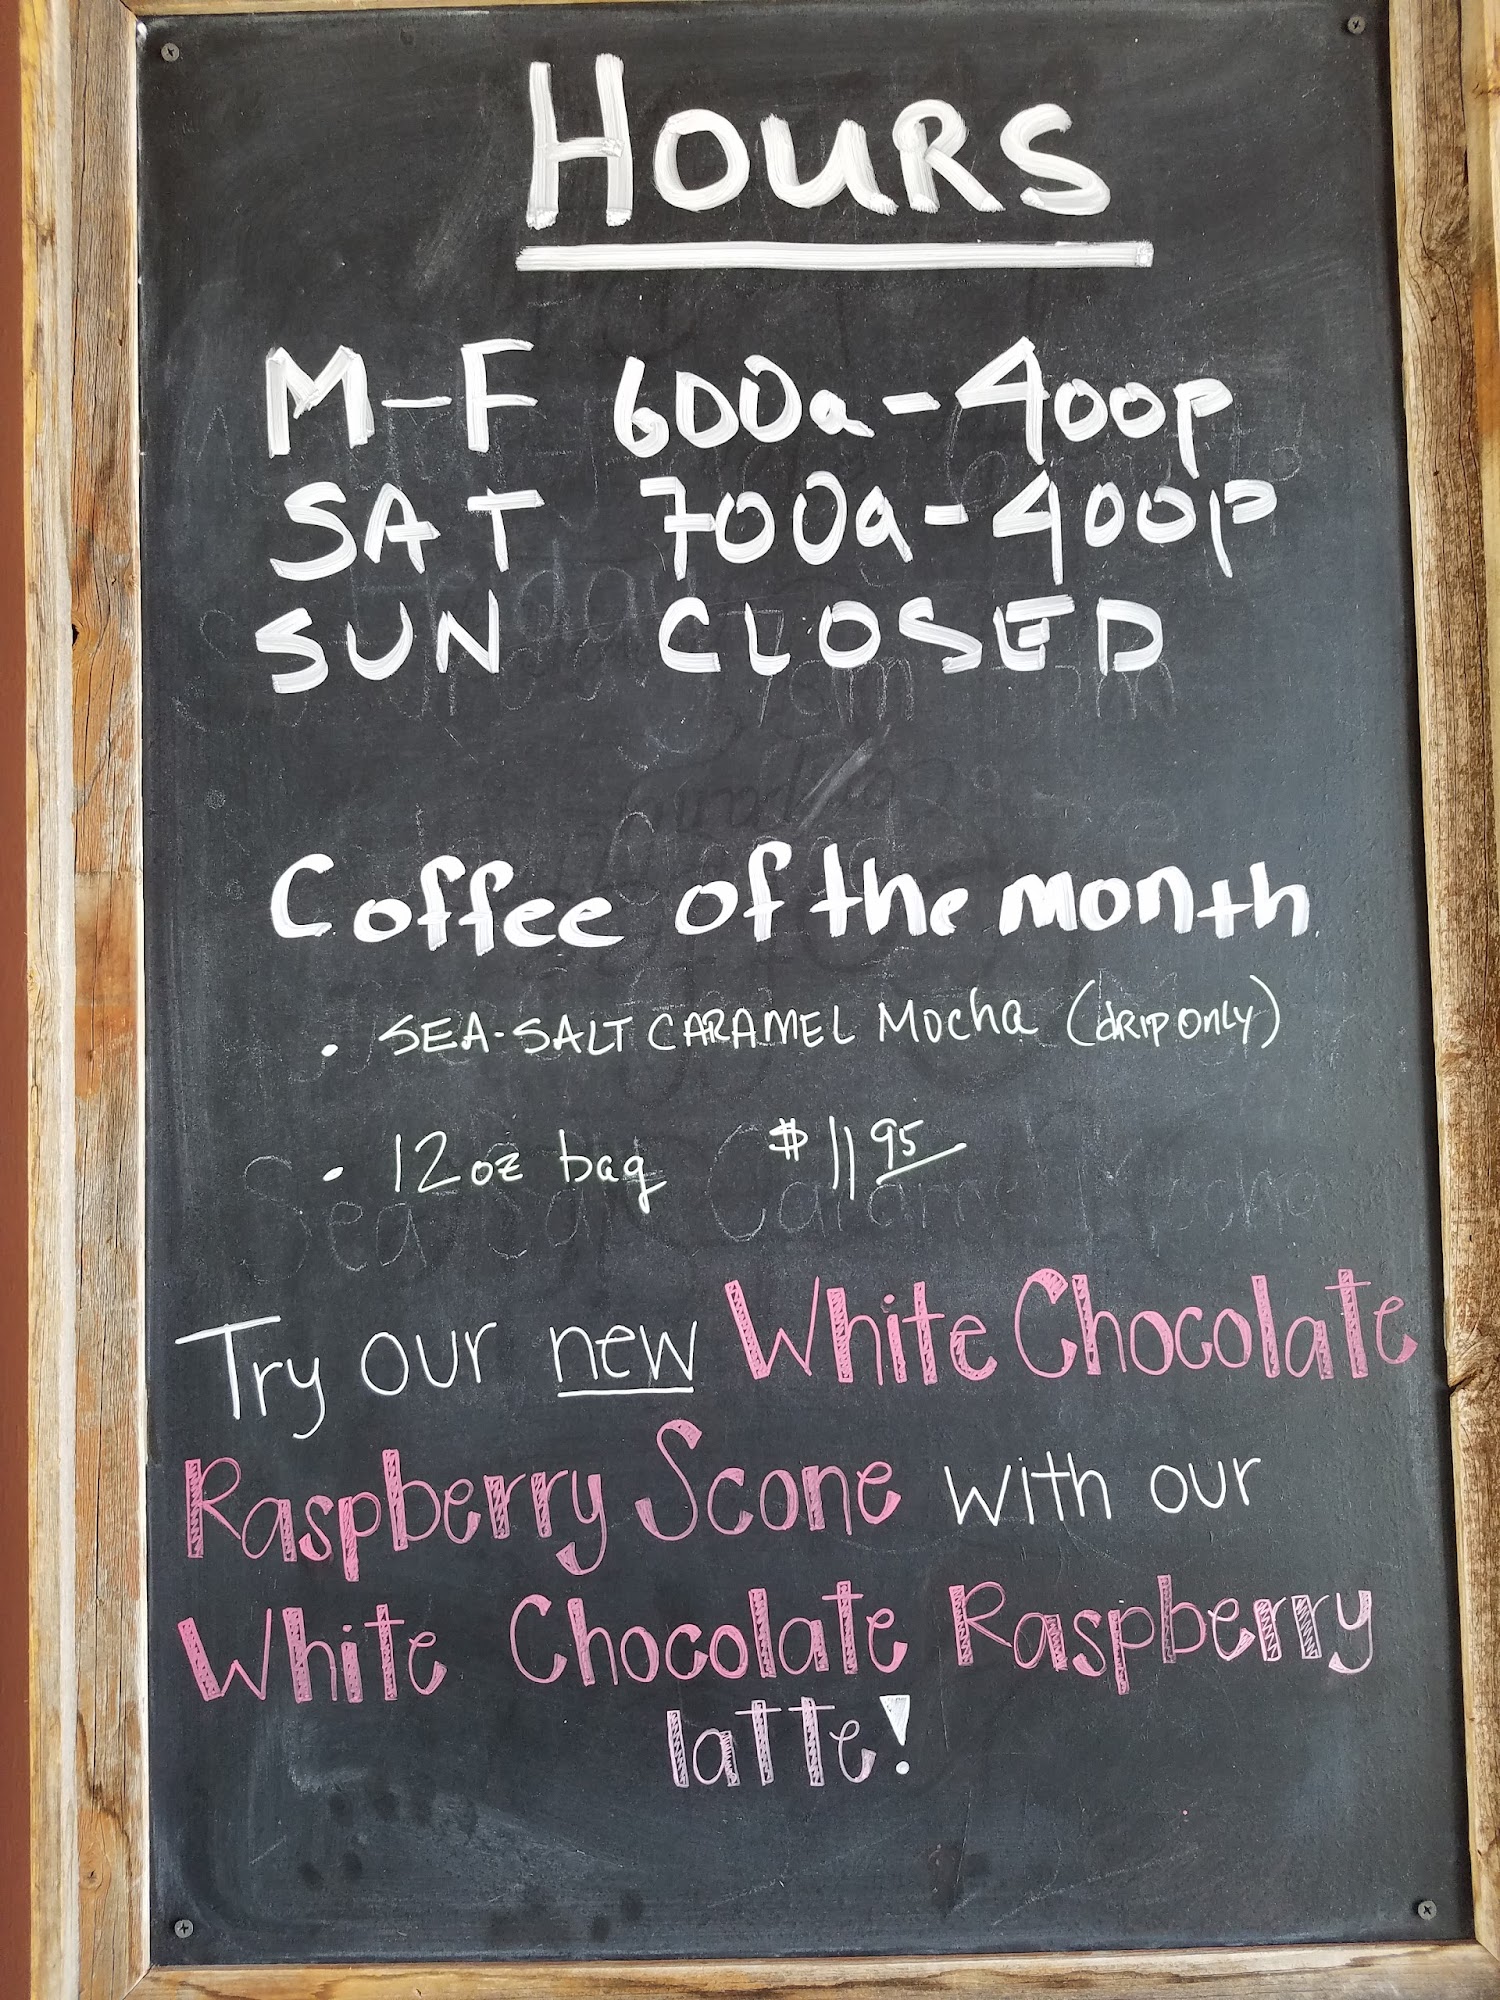 HOURS
M-F 600a-400p
SAT 700a-400p
SUN CLOSED
Coffee of the month
• SEA-SALT CARAMEL Mocha (drip only)
• 12 oz bag $11 95
Try our new White Chocolate
Raspberry Scone with our
White Chocolate Raspberry
latte!